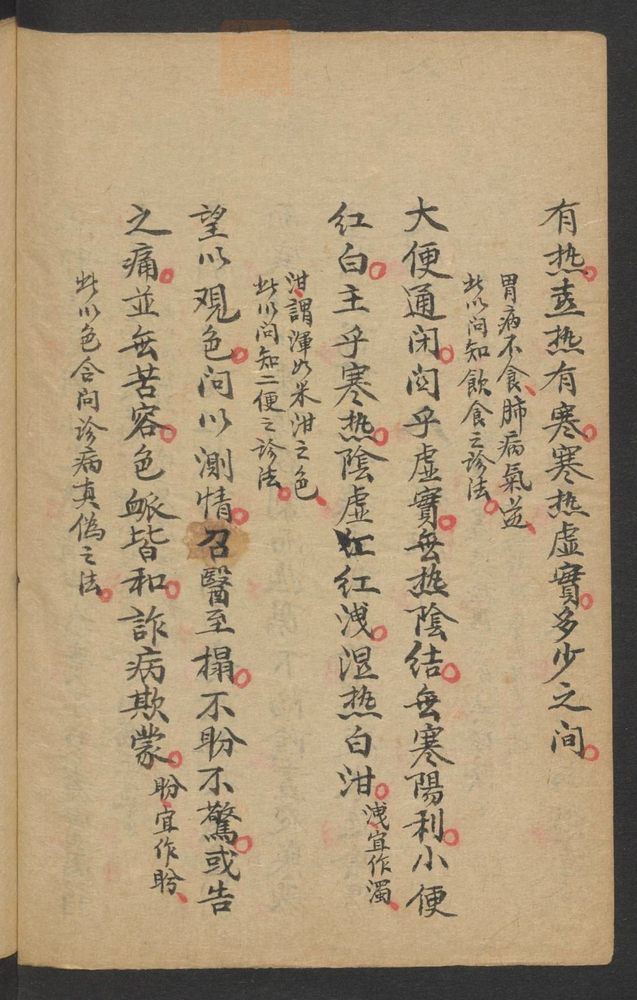 有热壴热有寒寒热虛實多少之间
胃病不食肺病氣逆
此以问知飲食之診法
大便通闭関乎虛實無热陰结無寒陽利小便
紅白主乎寒热陰虛紅紅洩湿热白泔
洩宜作濁
泔謂渾如米泔之色
此以问知二便之診法
望以观色问以測情召醫至榻不盼不驚或告
之痛並無苦容色脈皆和詐病欺蒙
盼宜作盻
此以色合问診病真偽之法